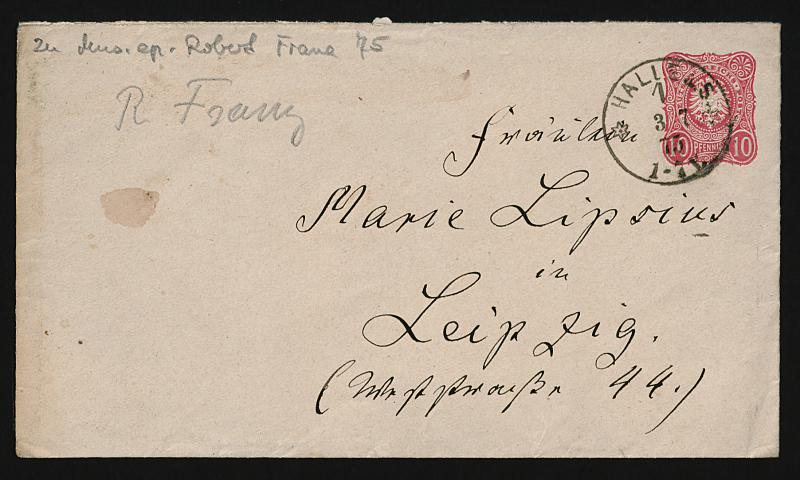 zu Mus. ep. Robert Franz 75
R Franz
HALLE
1
3 7
75
1-
10 PFENNIG 10
Fräulein
Marie Lipsius
in
Leipzig.
(Weststraße 44.)